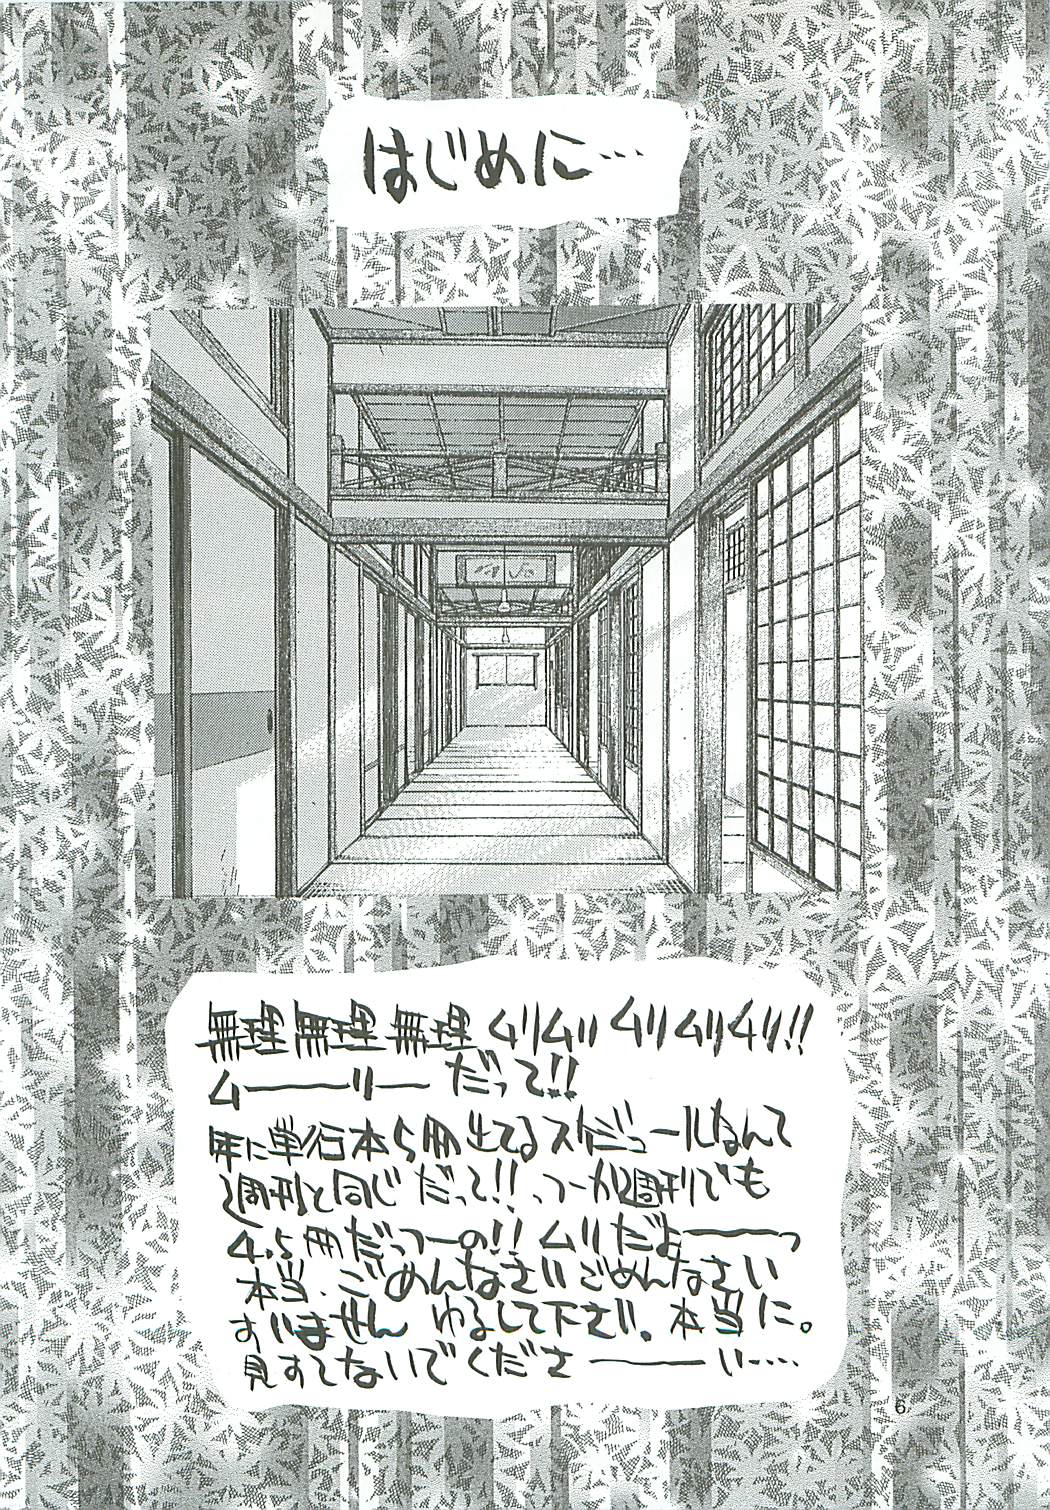 はじめに…
無理無理無理ムリムリムリムリムリ!!
ムーーリーだって!!
年に単行本5冊出てるスケジュールなんて
週刊と同じだって!!、つーか週刊でも
4、5冊だっつーの!! ムリだよーーっ
本当、ごめんなさいごめんなさい
すいません ゆるして下さい。本当に。
見すてないでくださーーい……
6